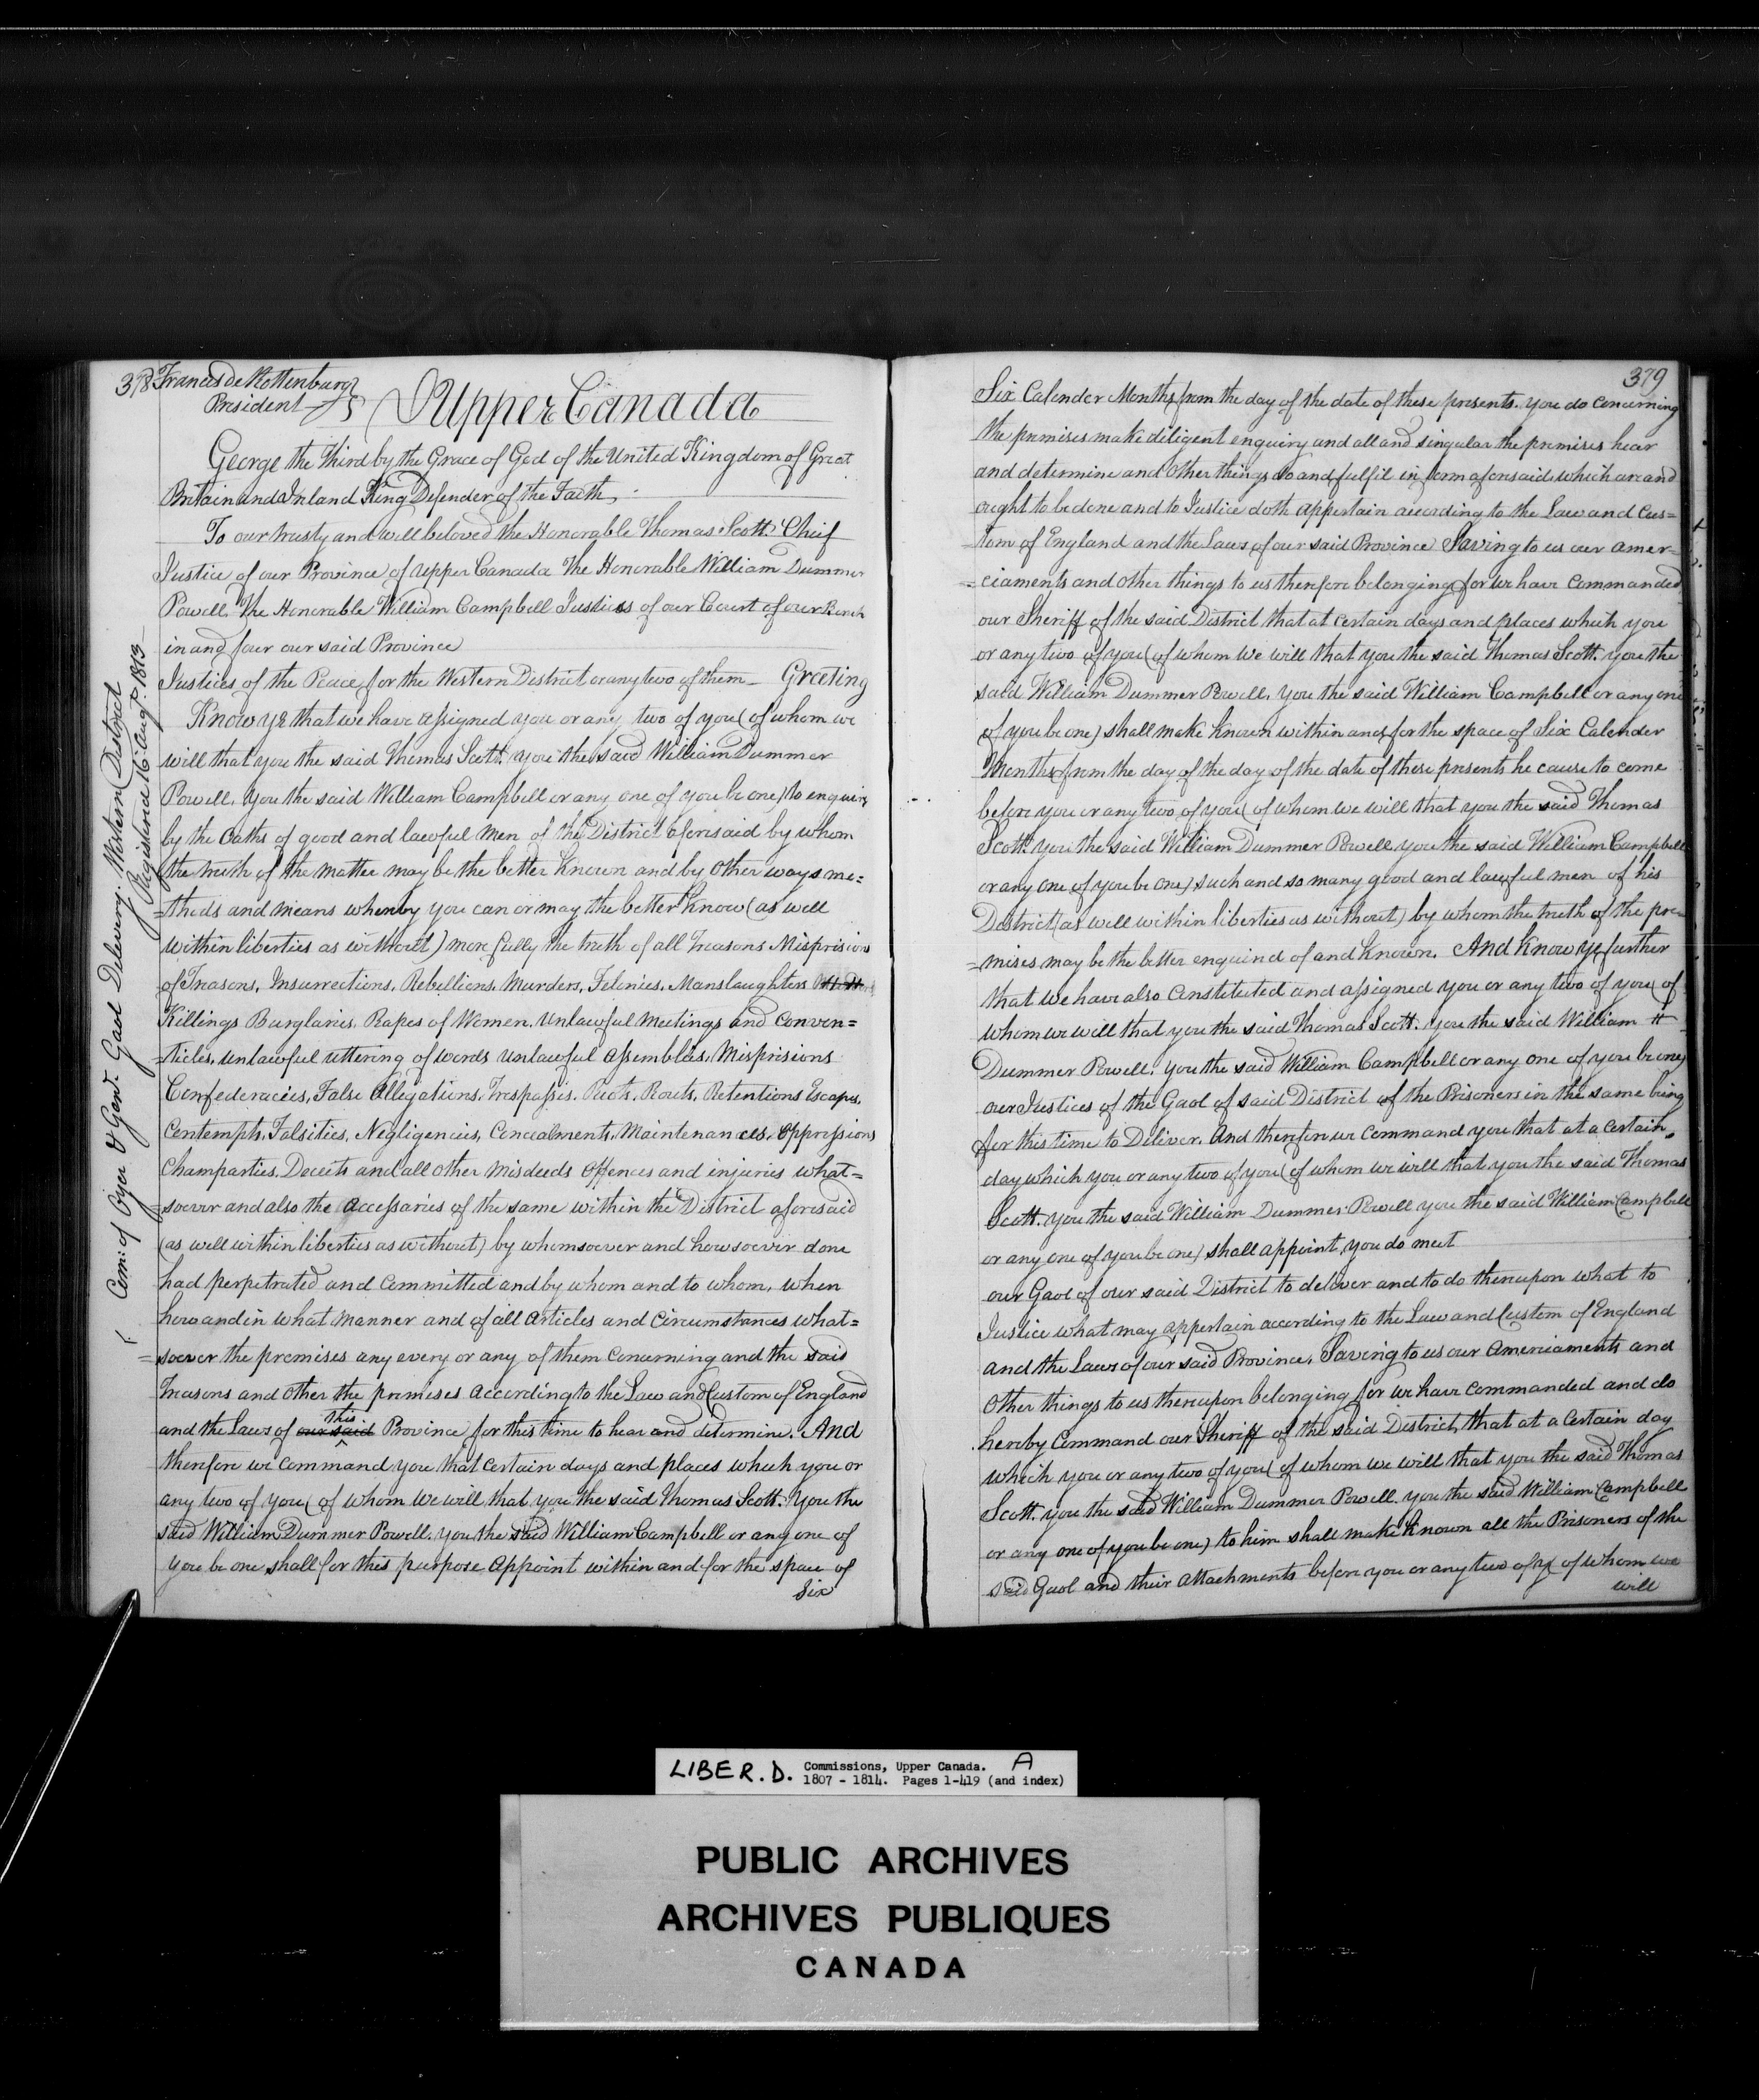 378 Francis de Rottenburg
President
Upper Canada
George the Third by the Grace of God of the United Kingdom of Great
Britain and Ireland King Defender of the Faith,
To our trusty and well beloved the Honorable Thomas Scott. Chief
Justice of our Province of Upper Canada The Honorable William Dummer
Powell. The Honorable William Campbell Justices of our Court of our Bench
in and four our said Province
Justices of the Peace for the Western District or any two of them — Greeting
Know ye that we have assigned you or any two of you (of whom we
will that you the said Thomas Scott. you the said William Dummer
Powell. you the said William Campbell or any one of you be one) to enquire
by the Oaths of good and lawful Men of the District aforesaid by whom
the truth of the matter may be the better Known and by other ways me=
=thods and means whereby you can or may the better Know (as well
within liberties as without) more fully the truth of all Treasons Misprisions
of Treasons, Insurrections, Rebellions, Murders, Felonies, Manslaughters
Killings Burglaries, Rapes of Women, unlawful Meetings and Conven=
=ticles, unlawful uttering of words unlawful assemblies, Misprisions
Confederacies, False Allegations, Trespasses, Riots, Routs, Retentions Escapes,
Contempts, Falsities, Negligencies, Concealments, Maintenances, Oppressions
Champarties, Deceits and all other misdeeds offences and injuries what=
=soever and also the accessaries of the same within the District aforesaid
(as well within liberties as without) by whomsoever and howsoever done
had perpetrated and committed and by whom and to whom, when
how and in what manner and of all articles and circumstances what=
=soever the premises any every or any of them concerning and the said
Treasons and other the premises according to the Law and Custom of England
and the Laws of our said this Province for this time to hear and determine. And
therefore we command you that certain days and places which you or
any two of you (of whom we will that you the said Thomas Scott. you the
said William Dummer Powell. you the said William Campbell or any one of
you be one shall for this purpose Appoint within and for the space of
Six
Com: of Oyer & Genl. Gaol Delivery. Western District
Registered 16. Augt. 1813
379
Six Calender Months from the day of the date of these presents. you do concerning
the premises make diligent enquiry and all and singular the premises hear
and determine and other things do and fulfil in form aforesaid which are and
ought to be done and to Justice doth appertain according to the Law and Cus=
=tom of England and the Laws of our said Province Saving to us our amer=
=ciaments and other things to us therefore belonging for we have commanded
our Sheriff of the said District that at certain days and places which you
or any two of you (of whom we will that you the said Thomas Scott. you the
said William Dummer Powell, you the said William Campbell or any one
of you be one) shall make known within and for the space of Six Calender
Months from the day of the day of the date of these presents he cause to come
before you or any two of you (of whom we will that you the said Thomas
Scott. you the said William Dummer Powell you the said William Campbell
or any one of you be one) such and so many good and lawful men of his
District (as well within liberties as without) by whom the truth of the pre=
=mises may be the better enquired of and known. And Know ye further
that we have also Constituted and assigned you or any two of you (of
whom we will that you the said Thomas Scott. you the said William
Dummer Powell. you the said William Campbell or any one of you be one)
our Justices of the Gaol of said District of the Prisoners in the same being
for this time to Deliver. And therefore we command you that at a certain
day which you or any two of you (of whom we will that you the said Thomas
Scott. you the said William Dummer Powell you the said William Campbell
or any one of you be one) shall appoint, you do meet
our Gaol of our said District to deliver and to do thereupon what to
Justice what may appertain according to the Law and Custom of England
and the Laws of our said Province. Saving to us our Amerciaments and
other things to us thereupon belonging for we have commanded and do
hereby Command our Sheriff of the said District, that at a certain day
which you or any two of you (of whom we will that you the said Thomas
Scott. you the said William Dummer Powell. you the said William Campbell
or any one of you be one) to him shall make known all the Prisoners of the
said Gaol and their attachments before you or any two of ye of whom we
will
LIBER. D. Commissions, Upper Canada. A
1807 - 1814. Pages 1-419 (and index)
PUBLIC ARCHIVES
ARCHIVES PUBLIQUES
CANADA